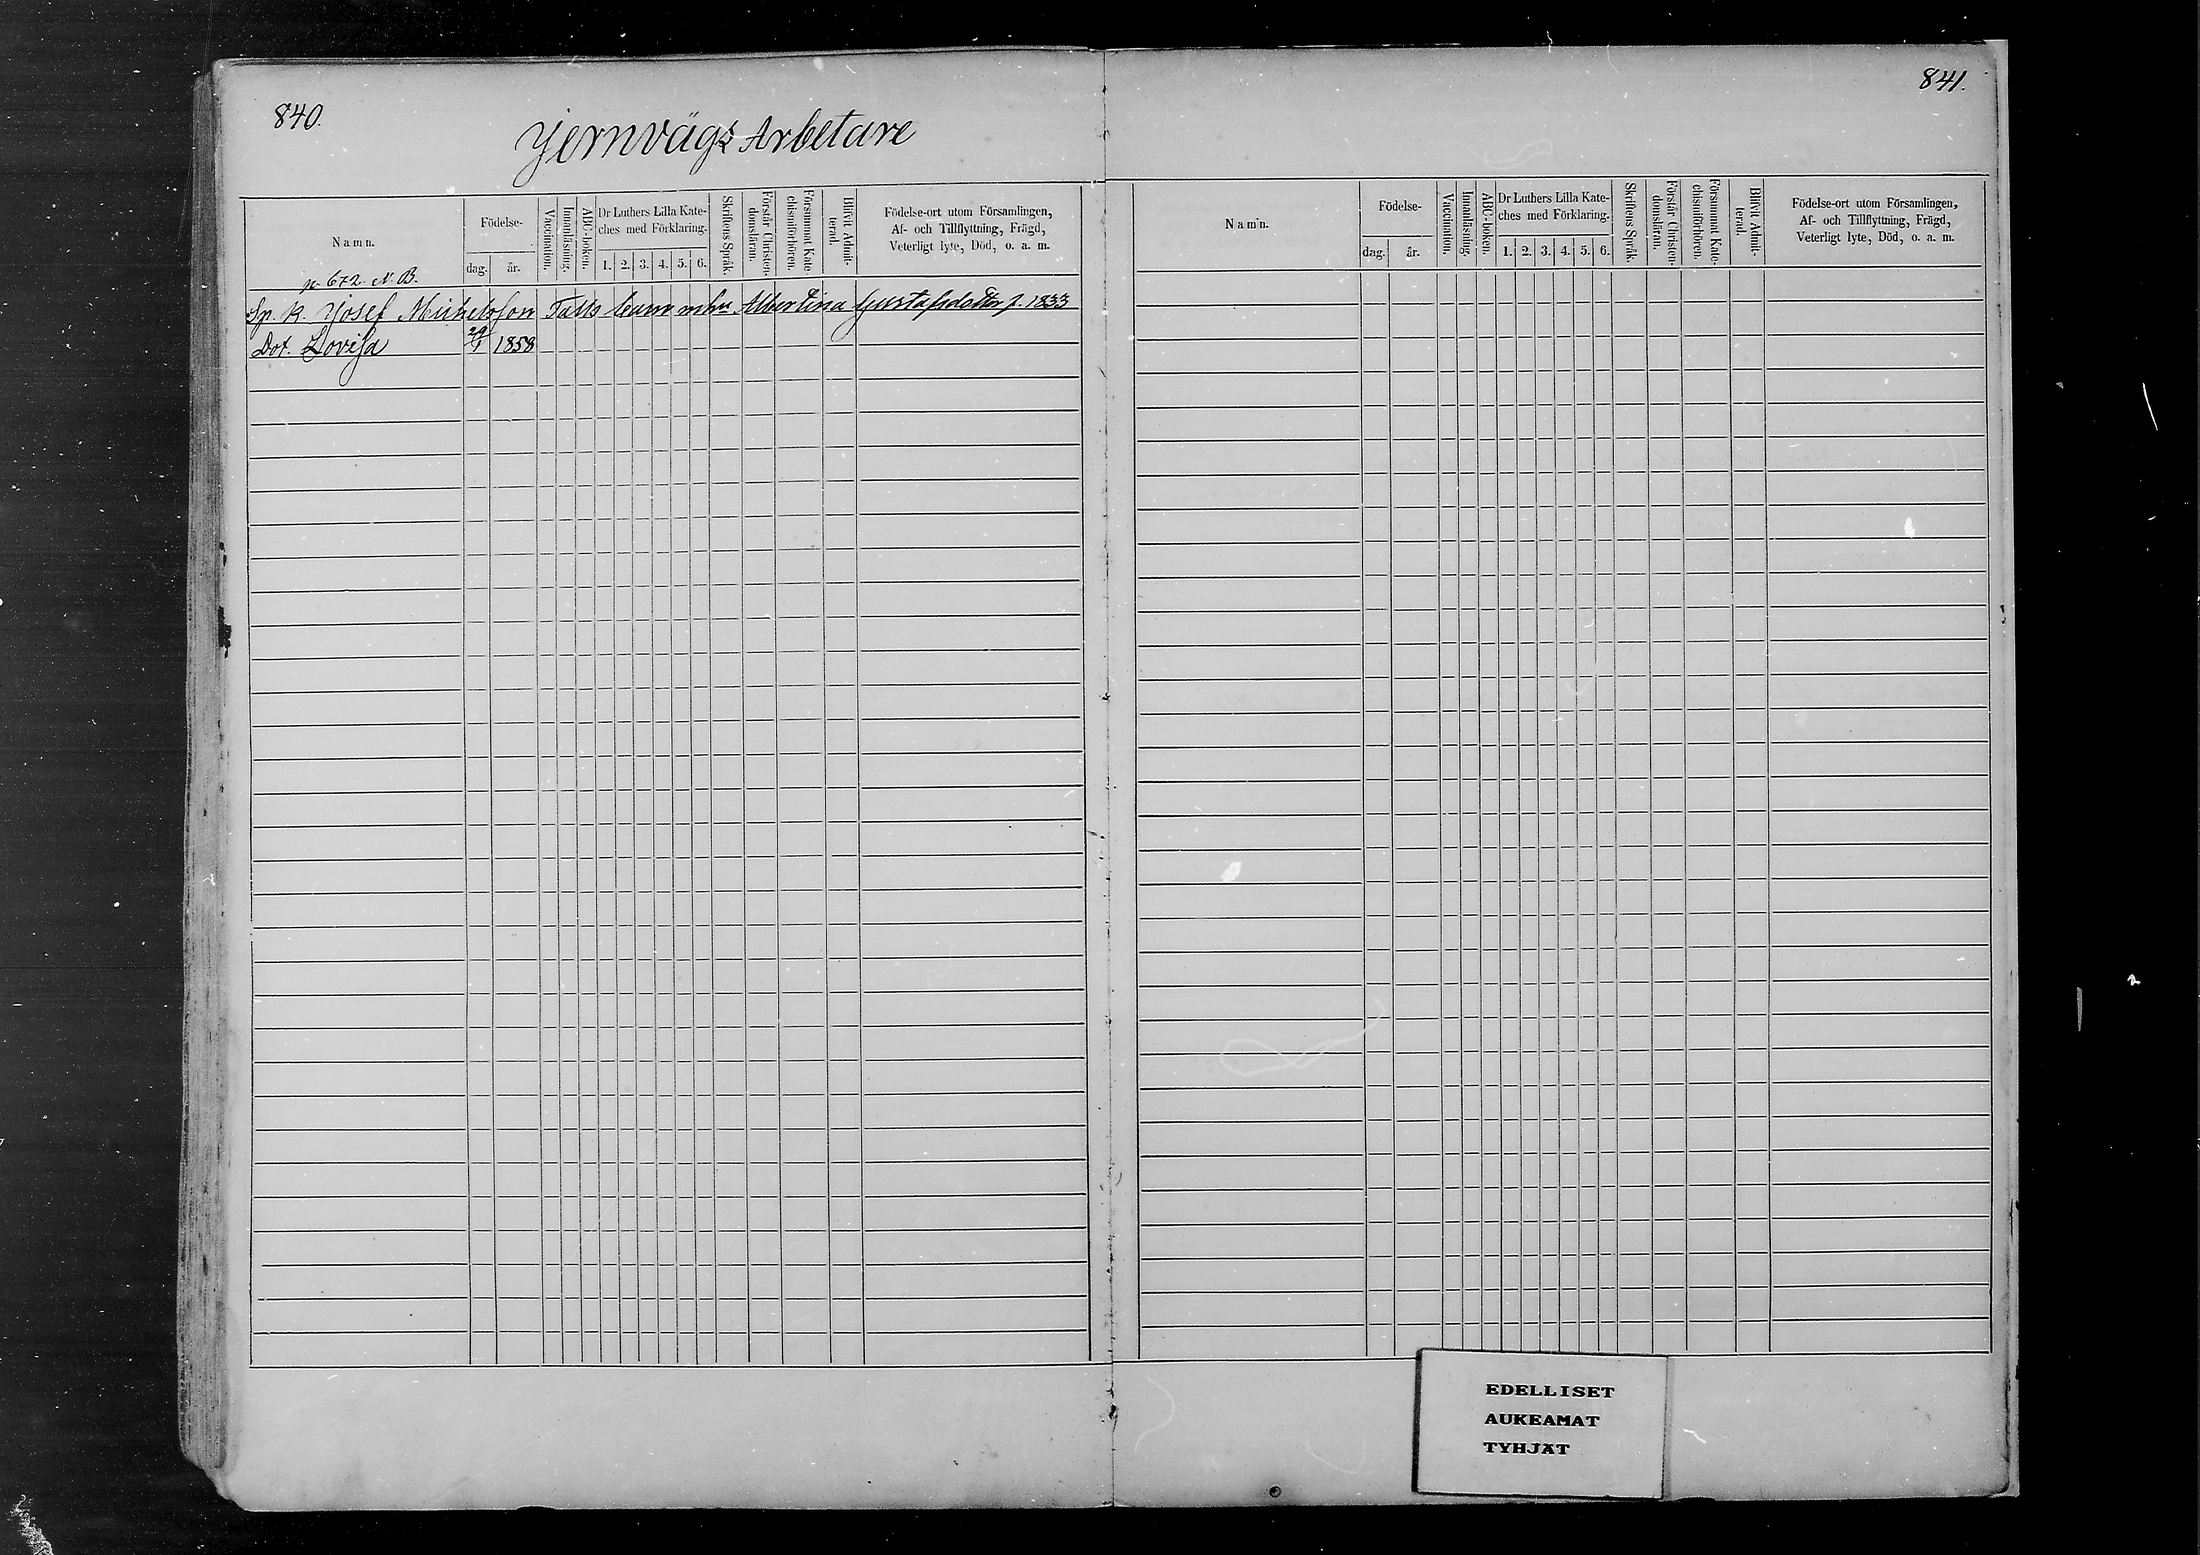 840.
Jernvägs Arbetare
Namn.
Födelse-
dag.
år.
Vaccination.
Innanläsning.
ABC-boken.
Dr Luthers Lilla Kate-
ches med Förklaring.
1. 2. 3. 4. 5. 6.
Skriftens Språk.
Förstår Christen-
domsläran.
Försummat Kate-
chismiförhören.
Blifvit Admit-
terad.
Födelse-ort utom Församlingen,
Af- och Tillflyttning, Frägd,
Veterligt lyte, Död, o. a. m.
p. 672. N. B.
Sp. K. Josef Michelsson Albertina Gustafsdotter f. 1833
Dot. Lovisa 1858
841.
Namn.
Födelse-
dag.
år.
Vaccination.
Innanläsning.
ABC-boken.
Dr Luthers Lilla Kate-
ches med Förklaring.
1. 2. 3. 4. 5. 6.
Skriftens Språk.
Förstår Christen-
domsläran.
Försummat Kate-
chismiförhören.
Blifvit Admit-
terad.
Födelse-ort utom Församlingen,
Af- och Tillflyttning, Frägd,
Veterligt lyte, Död, o. a. m.
EDELLISET
AUKEAMAT
TYHJÄT